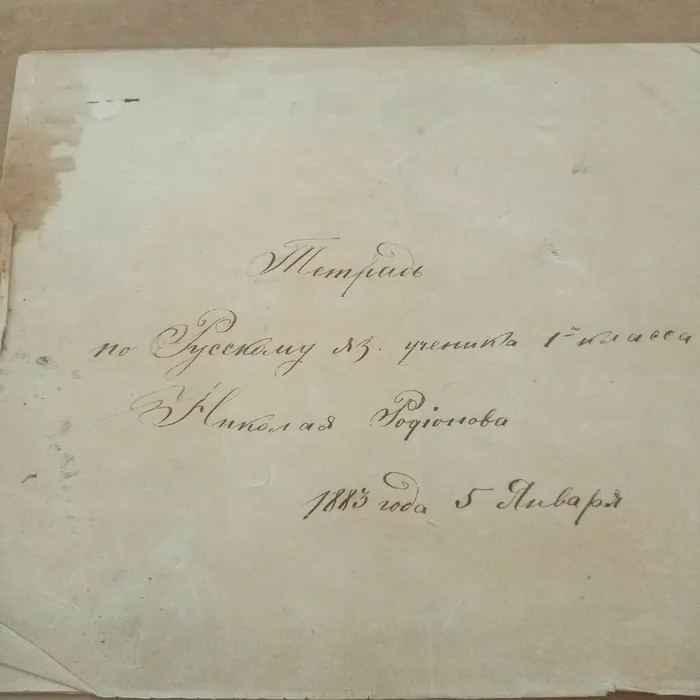 Тетрадь
по Русскому яз. ученика 1го класса
Николая Родіонова
1883 года 5 Января